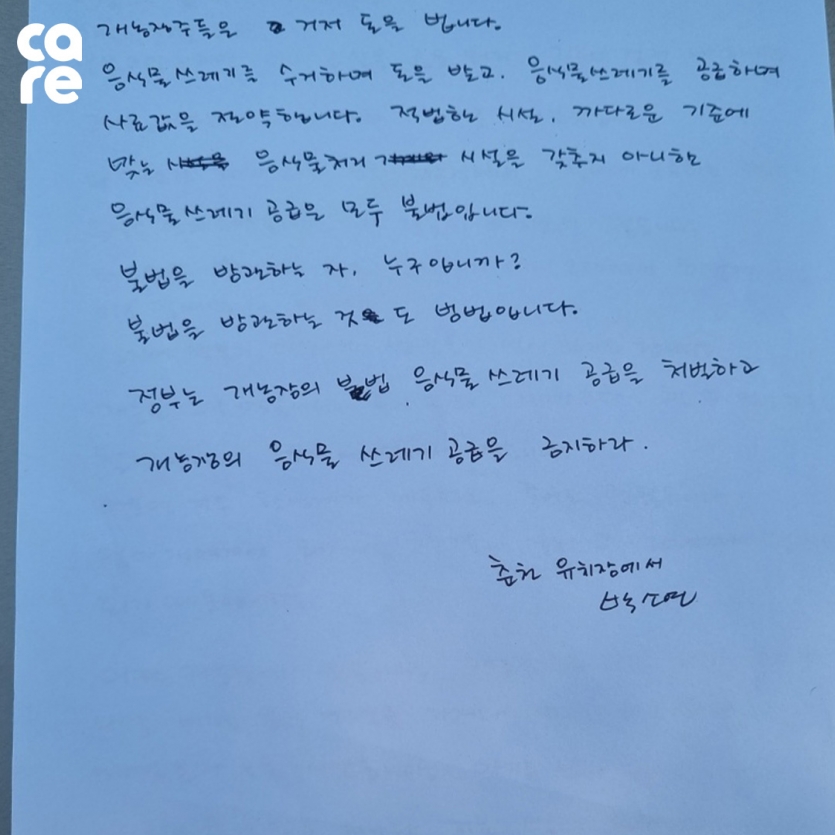 care
개농장주들은 거저 돈을 법니다.
음식물쓰레기를 수거하며 돈을 받고, 음식물쓰레기를 공급하며
사료값을 절약합니다. 적법한 시설, 까다로운 기준에
맞는 음식물처리 시설을 갖추지 아니한
음식물쓰레기 공급은 모두 불법입니다.
불법을 방관하는 자, 누구입니까?
불법을 방관하는 것도 범법입니다.
정부는 개농장의 불법 음식물 쓰레기 공급을 처벌하고
개농장의 음식물 쓰레기 공급을 금지하라.
춘천 유치장에서
박소연